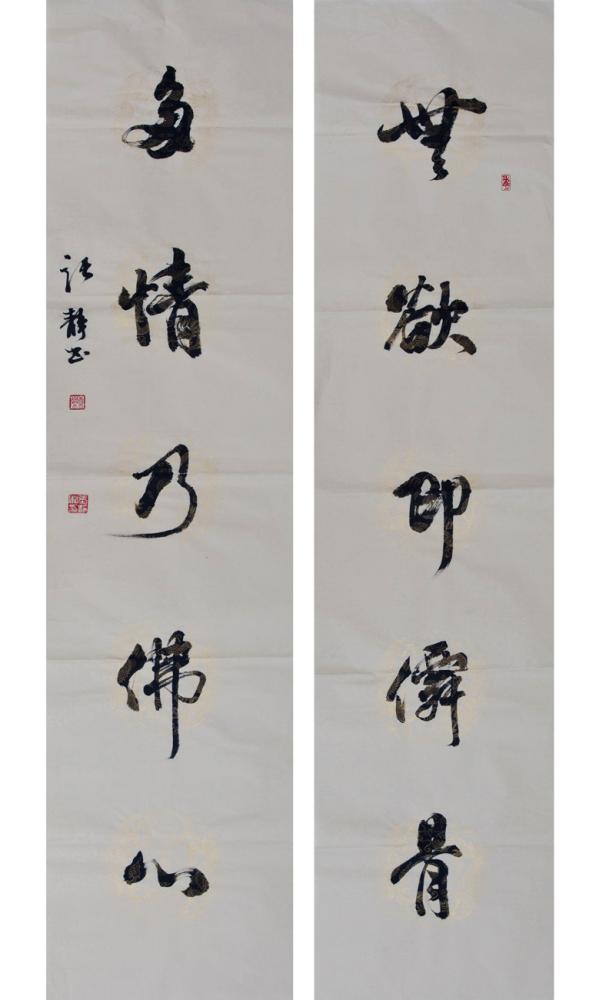 無欲即僊骨
多情乃佛心
張靜書